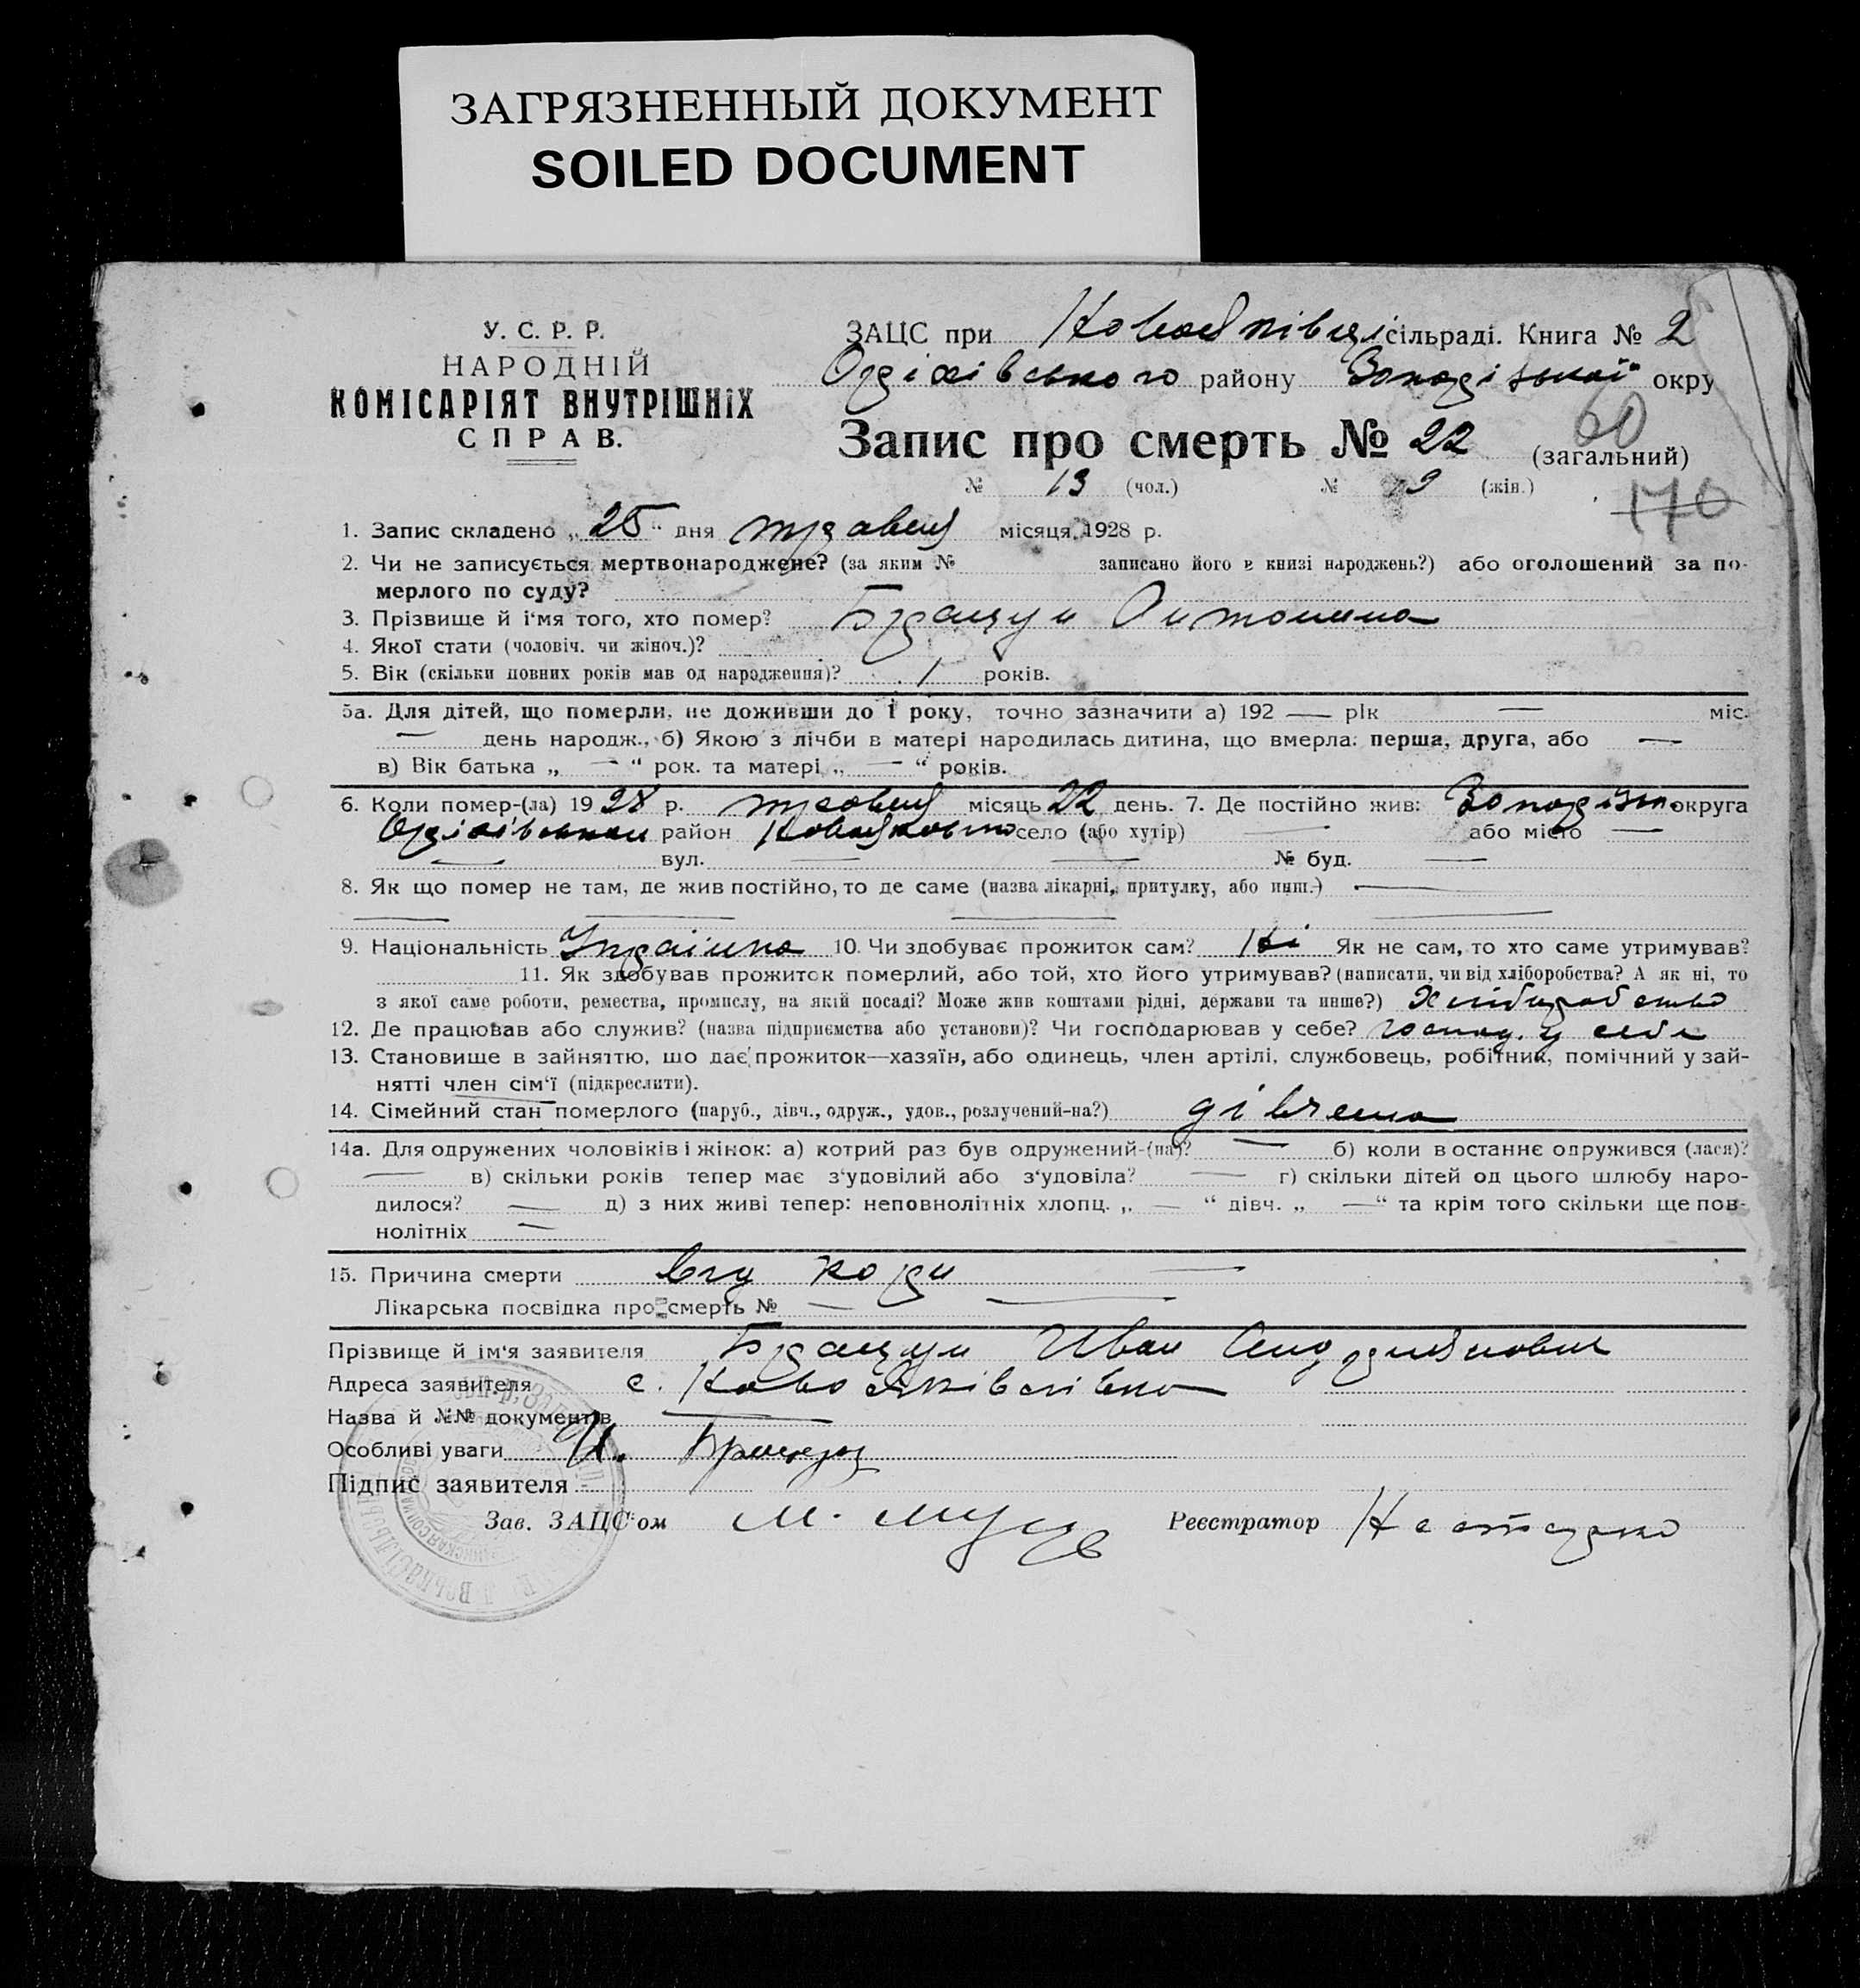 ЗАГРЯЗНЕННЫЙ ДОКУМЕНТ
SOILED DOCUMENT
У. С. Р. Р.
НАРОДНІЙ
КОМІСАРІЯТ ВНУТРІШНІХ
СПРАВ.
ЗАЦС при сільраді. Книга № 2
Оріхівського району Запорізької окру
60
Запис про смерть № 22 (загальний)
№ 13 (чол.) № 9 (жін.)
170
1. Запис складено „25“ дня травця місяця 1928 р.
2. Чи не записується мертвонароджене? (за яким № записано його в книзі народжень?) або оголошений за по-
мерлого по суду?
3. Прізвище й і'мя того, хто помер? Бращун Антонина
4. Якої стати (чоловіч. чи жіноч.)?
5. Вік (скільки повних років мав од народження)? 1 років.
5а. Для дітей, що померли, не доживши до 1 року, точно зазначити а) 192 — рік — міс.
— день народж., б) Якою з лічби в матері народилась дитина, що вмерла: перша, друга, або —
в) Вік батька „ — “ рок. та матері „ — “ років.
6. Коли помер-(ла) 1928 р. травця місяць 22 день. 7. Де постійно жив: округа
район село (або хутір) — або місто —
— вул. — — № буд. —
8. Як що помер не там, де жив постійно, то де саме (назва лікарні, притулку, або инш.) —
— — — —
9. Національність Україинка 10. Чи здобуває прожиток сам? Ні Як не сам, то хто саме утримував?
11. Як здобував прожиток померлий, або той, хто його утримував? (написати, чи від хліборобства? А як ні, то
з якої саме роботи, ремества, промислу, на якій посаді? Може жив коштами рідні, держави та инше?) Хліборобство
12. Де працював або служив? (назва підприємства або установи)? Чи господарював у себе? господ. у себе
13. Становище в зайняттю, що дає прожиток—хазяїн, або одинець, член артілі, службовець, робітник, помічний у зай-
нятті член сім'ї (підкреслити).
14. Сімейний стан померлого (паруб., дівч., одруж., удов., розлучений-на?) дівчена
14а. Для одружених чоловіків і жінок: а) котрий раз був одружений-(на)? — б) коли в останнє одружився (лася)?
— в) скільки років тепер має з'удовілий або з'удовіла? — г) скільки дітей од цього шлюбу наро-
дилося? — д) з них живі тепер: неповнолітніх хлопц. „ — “ дівч. „ — “ та крім того скільки ще пов-
нолітніх —
15. Причина смерти від кори —
Лікарська посвідка про смерть № — —
Прізвище й ім'я заявителя Бращун Иван
Адреса заявителя с.
Назва й №№ документів
Особливі уваги И. Бращун
Підпис заявителя
Зав. ЗАЦС'ом М. Реєстратор